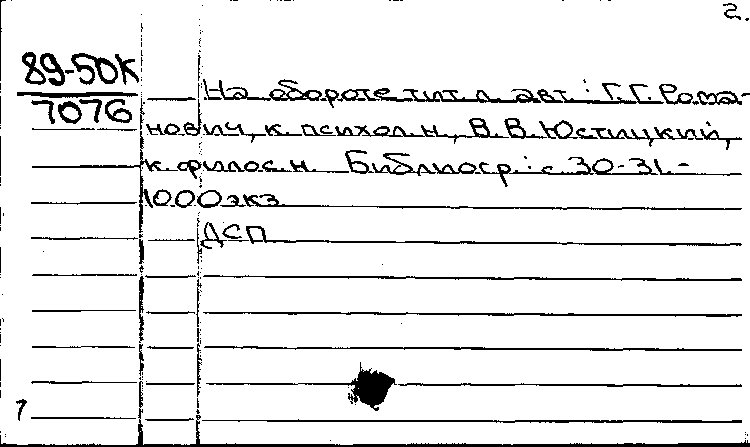 2.
89-50К
7076
На обороте тит. л. авт.: Г.Г. Рома-
нович, к. психол. н., В.В. Юстицкий,
к. филос. н. Библиогр.: с. 30-31.-
1000 экз.
ДСП
1